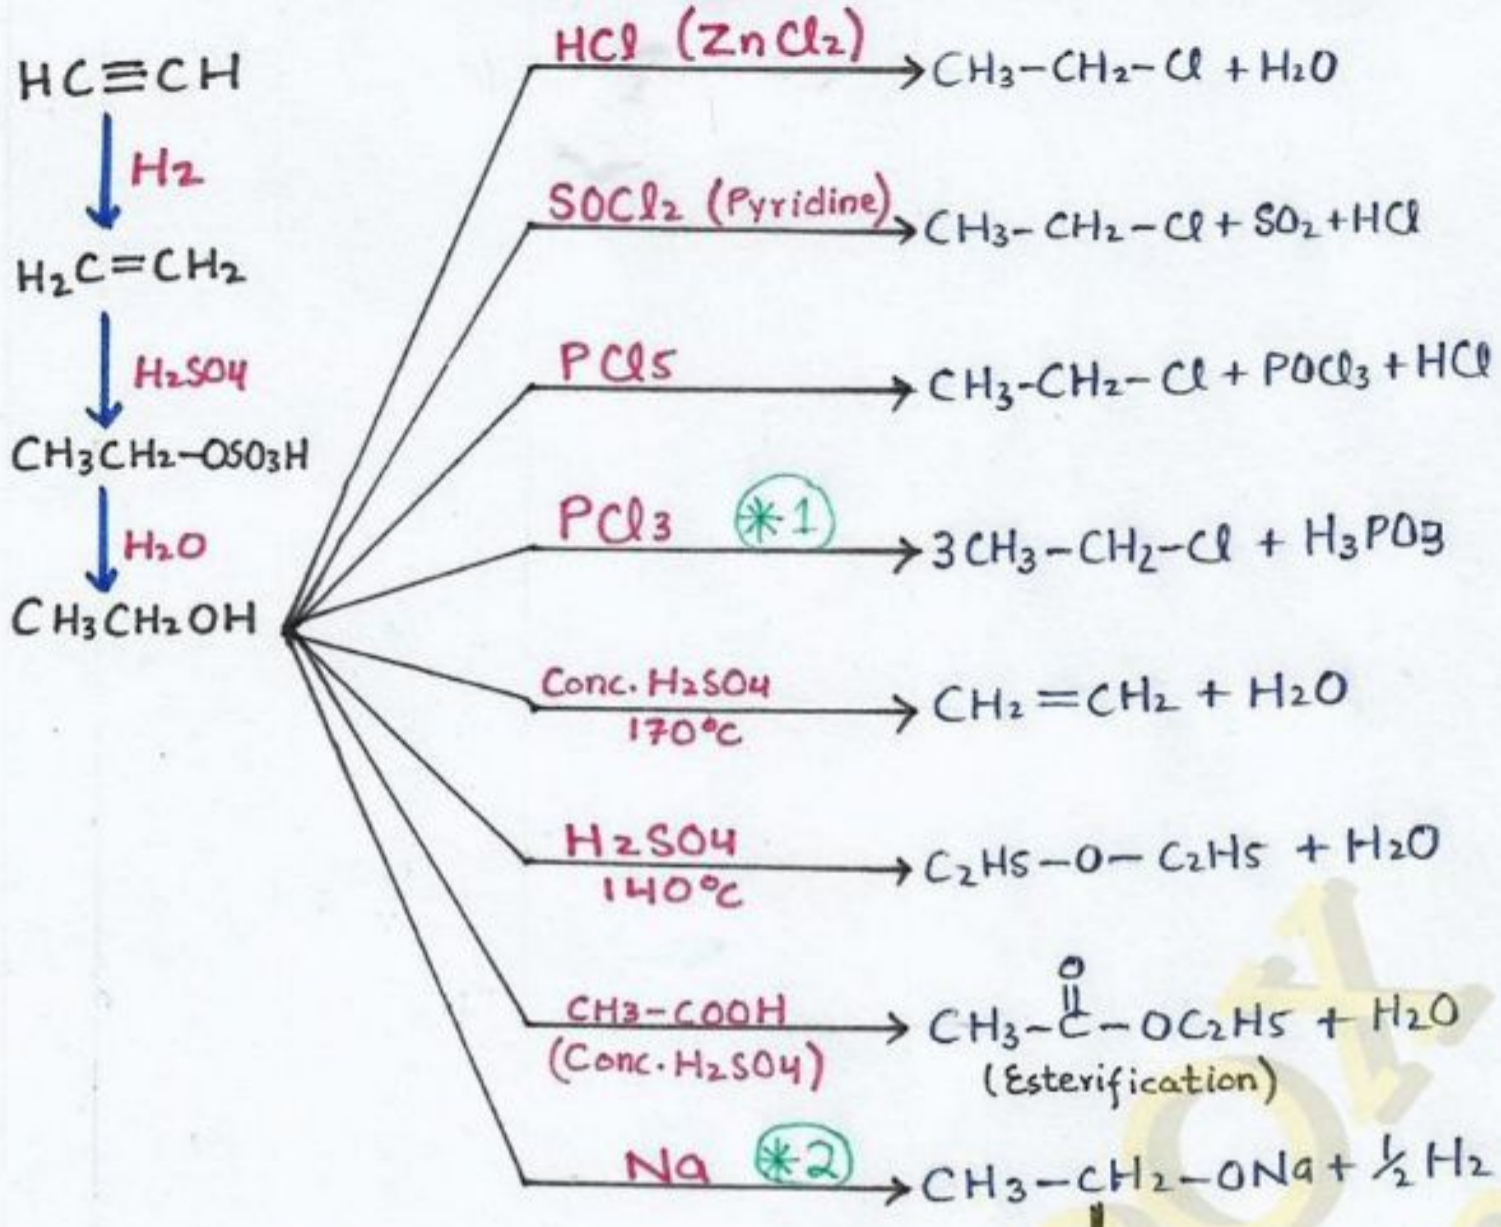 HC≡CH
H2
H2C=CH2
H2SO4
CH3CH2-OSO3H
H2O
CH3CH2OH
HCl (ZnCl2)
CH3-CH2-Cl + H2O
SOCl2 (Pyridine)
CH3-CH2-Cl + SO2 + HCl
PCl5
CH3-CH2-Cl + POCl3 + HCl
PCl3 *1
3CH3-CH2-Cl + H3PO3
Conc. H2SO4
170°C
CH2=CH2 + H2O
H2SO4
140°C
C2H5-O-C2H5 + H2O
CH3-COOH
(Conc. H2SO4)
O
CH3-C-OC2H5 + H2O
(Esterification)
Na *2
CH3-CH2-ONa + ½ H2